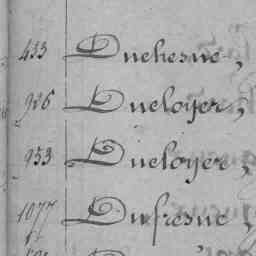 433 Duchesne,
926 Ducloyer,
953 Ducloyer,
1077 Dufresne,